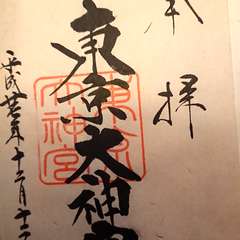 奉拝
東京大神宮
平成廿五年十二月十二
東京大神宮